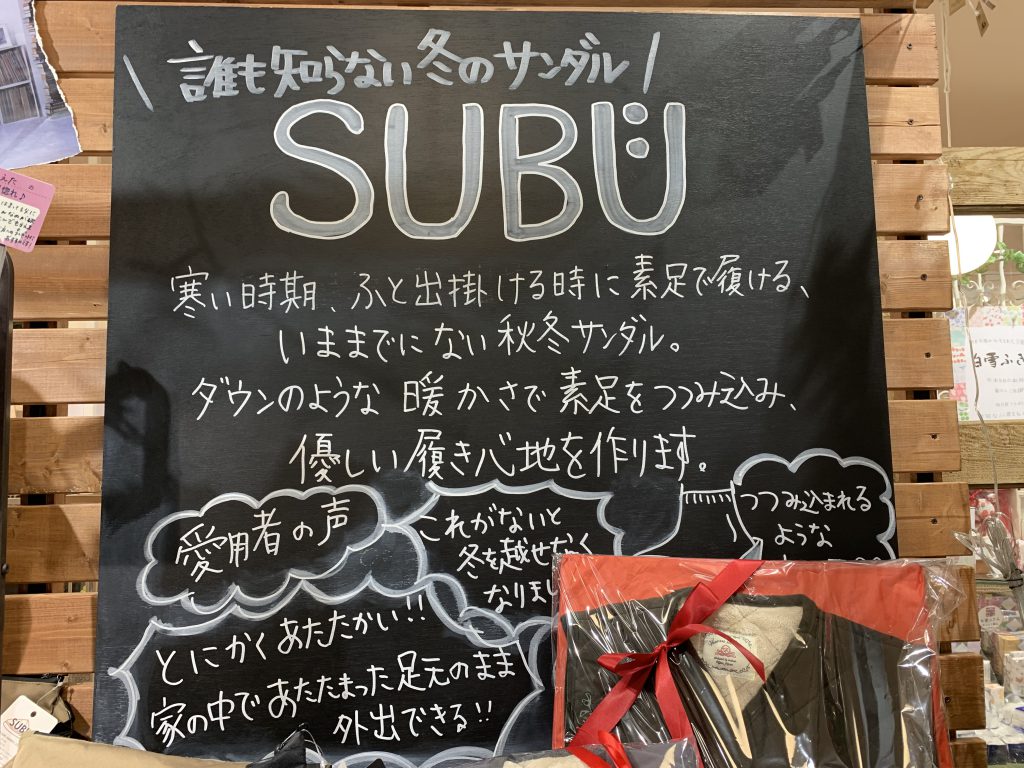 誰も知らない冬のサンダル
SUBU
寒い時期、ふと出掛ける時に素足で履ける、
いままでにない秋冬サンダル。
ダウンのような暖かさで素足をつつみ込み、
優しい履き心地を作ります。
愛用者の声
これがないと
冬を越せなく
なりまし
つつみ込まれる
ような
とにかくあたたかい!!
家の中であたたまった足元のまま
外出できる!!
白雪ふ
SUBU